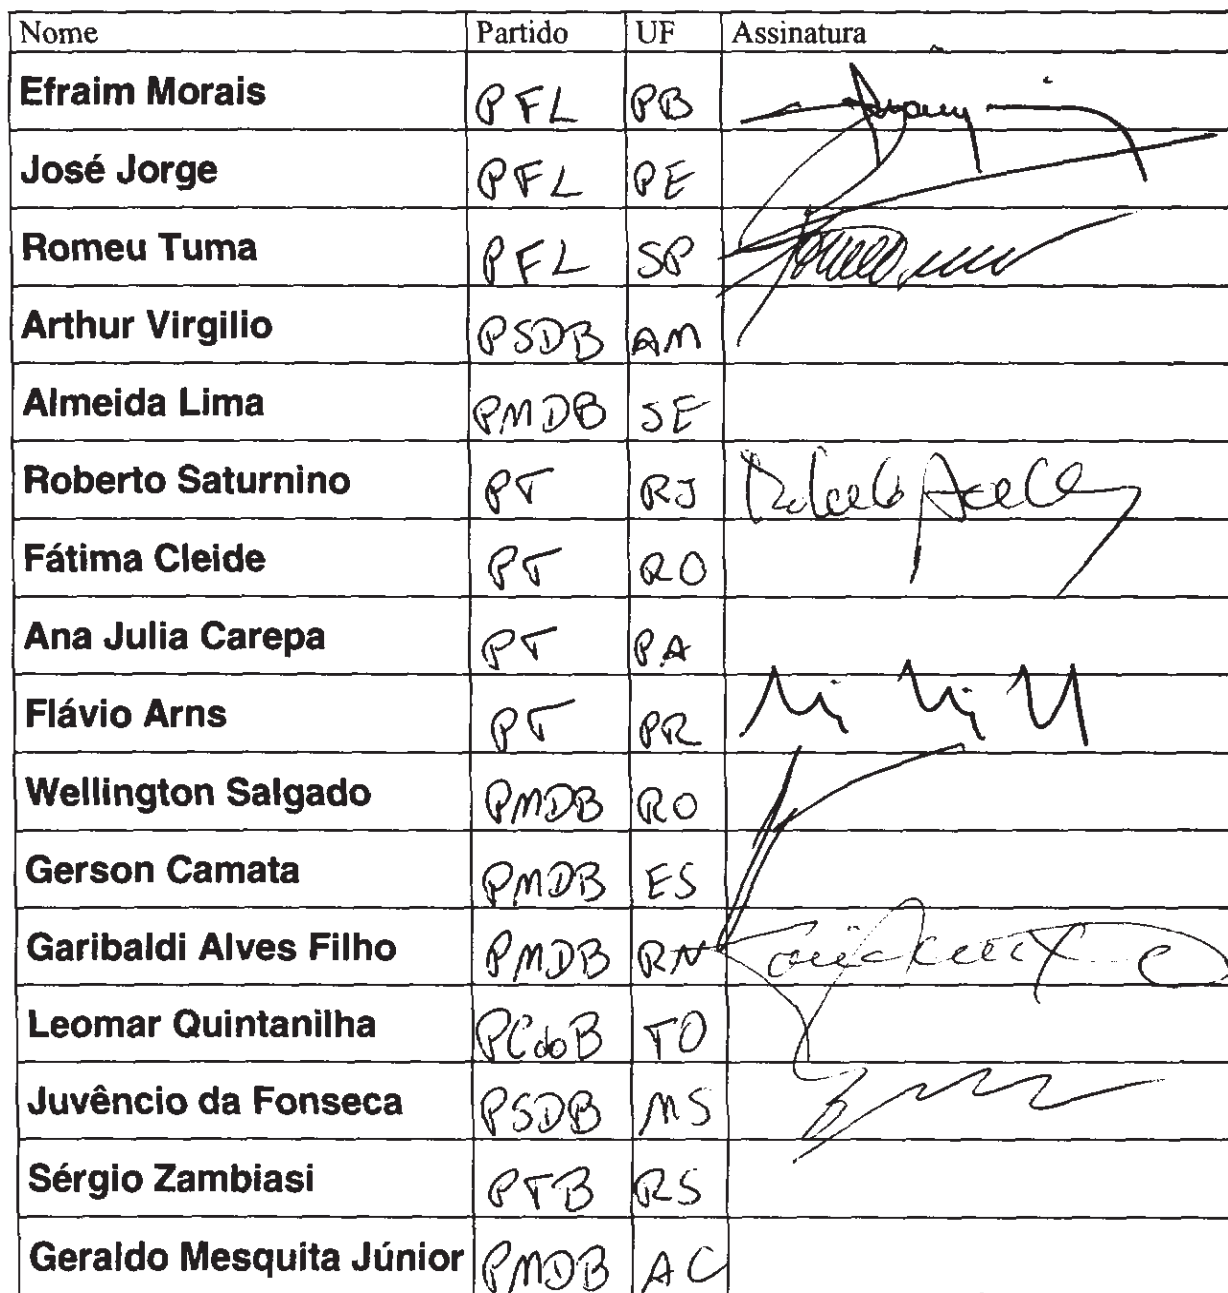 Nome Partido UF Assinatura
Efraim Morais PFL PB
José Jorge PFL PE
Romeu Tuma PFL SP
Arthur Virgilio PSDB AM
Almeida Lima PMDB SE
Roberto Saturnino PT RJ
Fátima Cleide PT RO
Ana Julia Carepa PT PA
Flávio Arns PT PR
Wellington Salgado PMDB RO
Gerson Camata PMDB ES
Garibaldi Alves Filho PMDB RN
Leomar Quintanilha PCdoB TO
Juvêncio da Fonseca PSDB MS
Sérgio Zambiasi PTB RS
Geraldo Mesquita Júnior PMDB AC